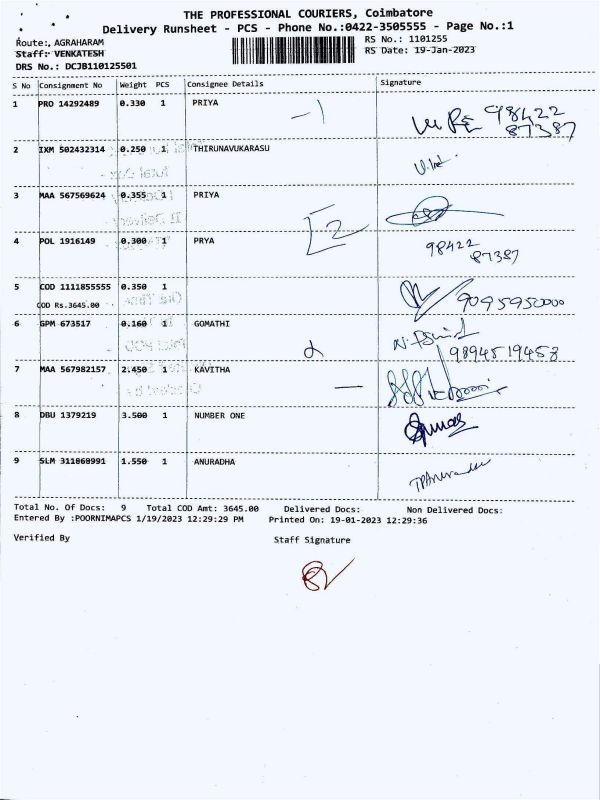 THE PROFESSIONAL COURIERS, Coimbatore
Delivery Runsheet - PCS - Phone No.:0422-3505555 - Page No.:1
Route:, AGRAHARAM
RS No.: 1101255
Staff: VENKATESH
RS Date: 19-Jan-2023
DRS No.: DCJB110125501
S No Consignment No Weight PCS Consignee Details Signature
1 PRO 14292489 0.330 1 PRIYA 98422
87387
2 IXM 502432314 0.250 1 THIRUNAVUKARASU
3 MAA 567569624 0.355 1 PRIYA
4 POL 1916149 0.300 1 PRYA 98422
87387
5 COD 1111855555 0.350 1 9095950000
COD Rs.3645.00
6 GPM 673517 0.160 1 GOMATHI
9894519458
7 MAA 567982157 2.450 1 KAVITHA
8 DBU 1379219 3.500 1 NUMBER ONE
9 SLM 311868991 1.550 1 ANURADHA
Total No. Of Docs: 9 Total COD Amt: 3645.00 Delivered Docs: Non Delivered Docs:
Entered By :POORNIMAPCS 1/19/2023 12:29:29 PM Printed On: 19-01-2023 12:29:36
Verified By Staff Signature